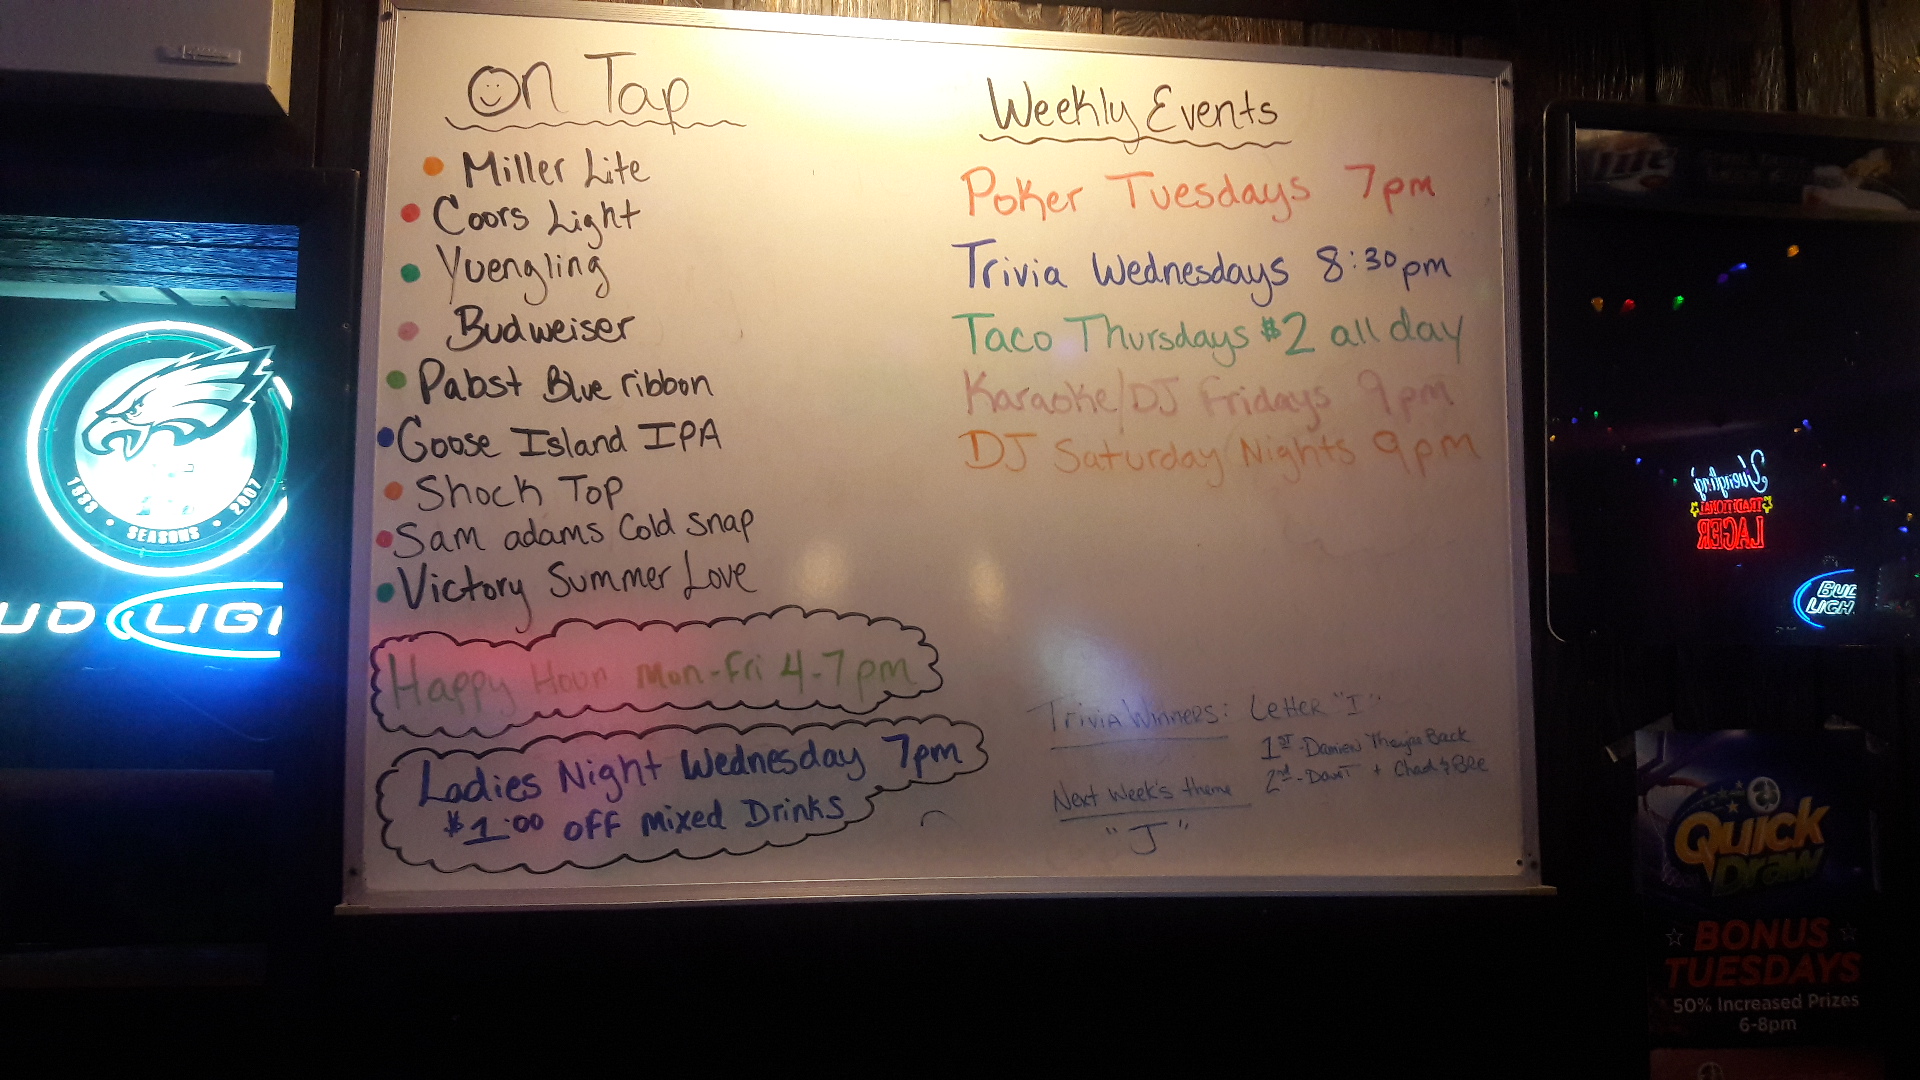 On Tap
Miller Lite
Coors Light
Yuengling
Budweiser
Pabst Blue ribbon
Goose Island IPA
Shock Top
Sam adams Cold snap
Victory Summer Love
Happy Hour Mon-Fri 4-7pm
Ladies Night Wednesday 7pm
$1.00 off mixed Drinks
Weekly Events
Poker Tuesdays 7pm
Trivia Wednesdays 8:30pm
Taco Thursdays $2 all day
Karaoke/DJ Fridays 9pm
DJ Saturday Nights 9pm
Trivia Winners: Letter "I"
1st - Damien They're Back
2nd - + Chad &
Next Week's theme
"J"
1933 • SEASONS • 2007
UD LIGH
Lite
Yuengling
TRADITIONAL
LAGER
BUD
LIGH
Quick
Draw
BONUS
TUESDAYS
50% Increased Prizes
6-8pm